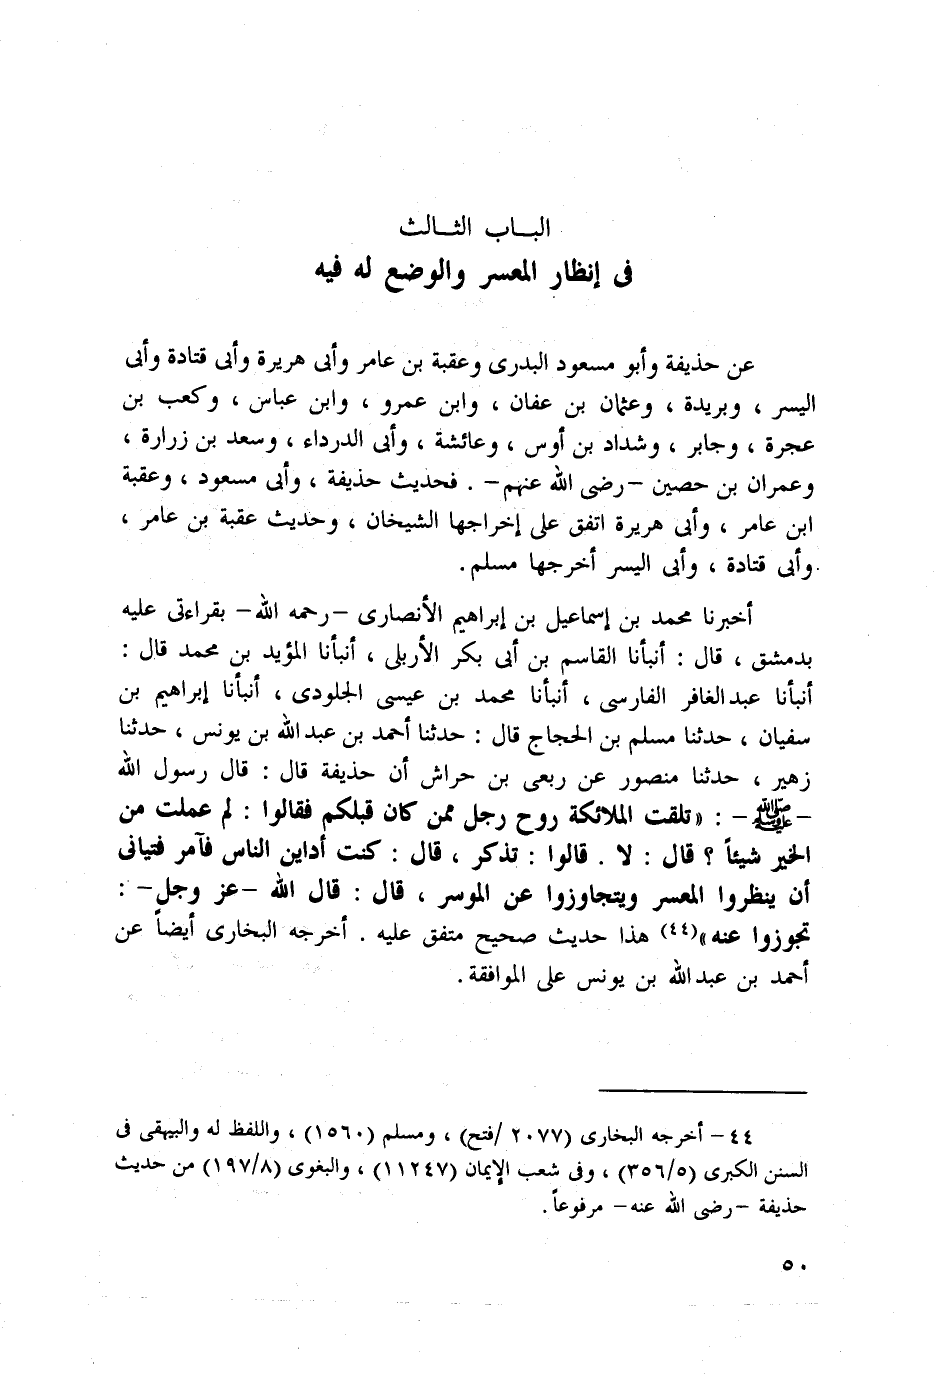 البـاب الثـالث
فى إنظار المعسر والوضع له فيه
عن حذيفة وأبو مسعود البدرى وعقبة بن عامر وأبى هريرة وأبى قتادة وأبى
اليسر ، وبريدة ، وعثمان بن عفان ، وابن عمرو ، وابن عباس ، وكعب بن
عجرة ، وجابر ، وشداد بن أوس ، وعائشة ، وأبى الدرداء ، وسعد بن زرارة ،
وعمران بن حصين -رضى الله عنهم- . فحديث حذيفة ، وأبى مسعود ، وعقبة
ابن عامر ، وأبى هريرة اتفق على إخراجها الشيخان ، وحديث عقبة بن عامر ،
وأبى قتادة ، وأبى اليسر أخرجها مسلم.
أخبرنا محمد بن إسماعيل بن إبراهيم الأنصارى -رحمه الله- بقراءتى عليه
بدمشق ، قال : أنبأنا القاسم بن أبى بكر الأربلى ، أنبأنا المؤيد بن محمد قال :
أنبأنا عبدالغافر الفارسى ، أنبأنا محمد بن عيسى الجلودى ، أنبأنا إبراهيم بن
سفيان ، حدثنا مسلم بن الحجاج قال : حدثنا أحمد بن عبدالله بن يونس ، حدثنا
زهير ، حدثنا منصور عن ربعى بن حراش أن حذيفة قال : قال رسول الله
-ﷺ- : «تلقت الملائكة روح رجل ممن كان قبلكم فقالوا : لم عملت من
الخير شيئاً ؟ قال : لا . قالوا : تذكر ، قال : كنت أداين الناس فآمر فتيانى
أن ينظروا المعسر ويتجاوزوا عن الموسر ، قال : قال الله -عز وجل- :
تجوزوا عنه»(٤٤) هذا حديث صحيح متفق عليه . أخرجه البخارى أيضاً عن
أحمد بن عبدالله بن يونس على الموافقة .
٤٤- أخرجه البخارى (٢٠٧٧ /فتح) ، ومسلم (١٥٦٠) ، واللفظ له والبيهقى فى
السنن الكبرى (٣٥٦/٥) ، وفى شعب الإيمان (١١٢٤٧) ، والبغوى (١٩٧/٨) من حديث
حذيفة -رضى الله عنه- مرفوعاً .
٥٠